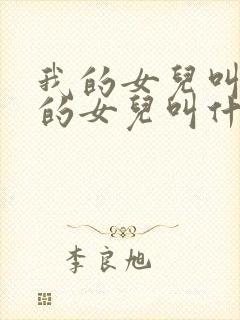 我的女兒叫
的女兒叫什
李良旭